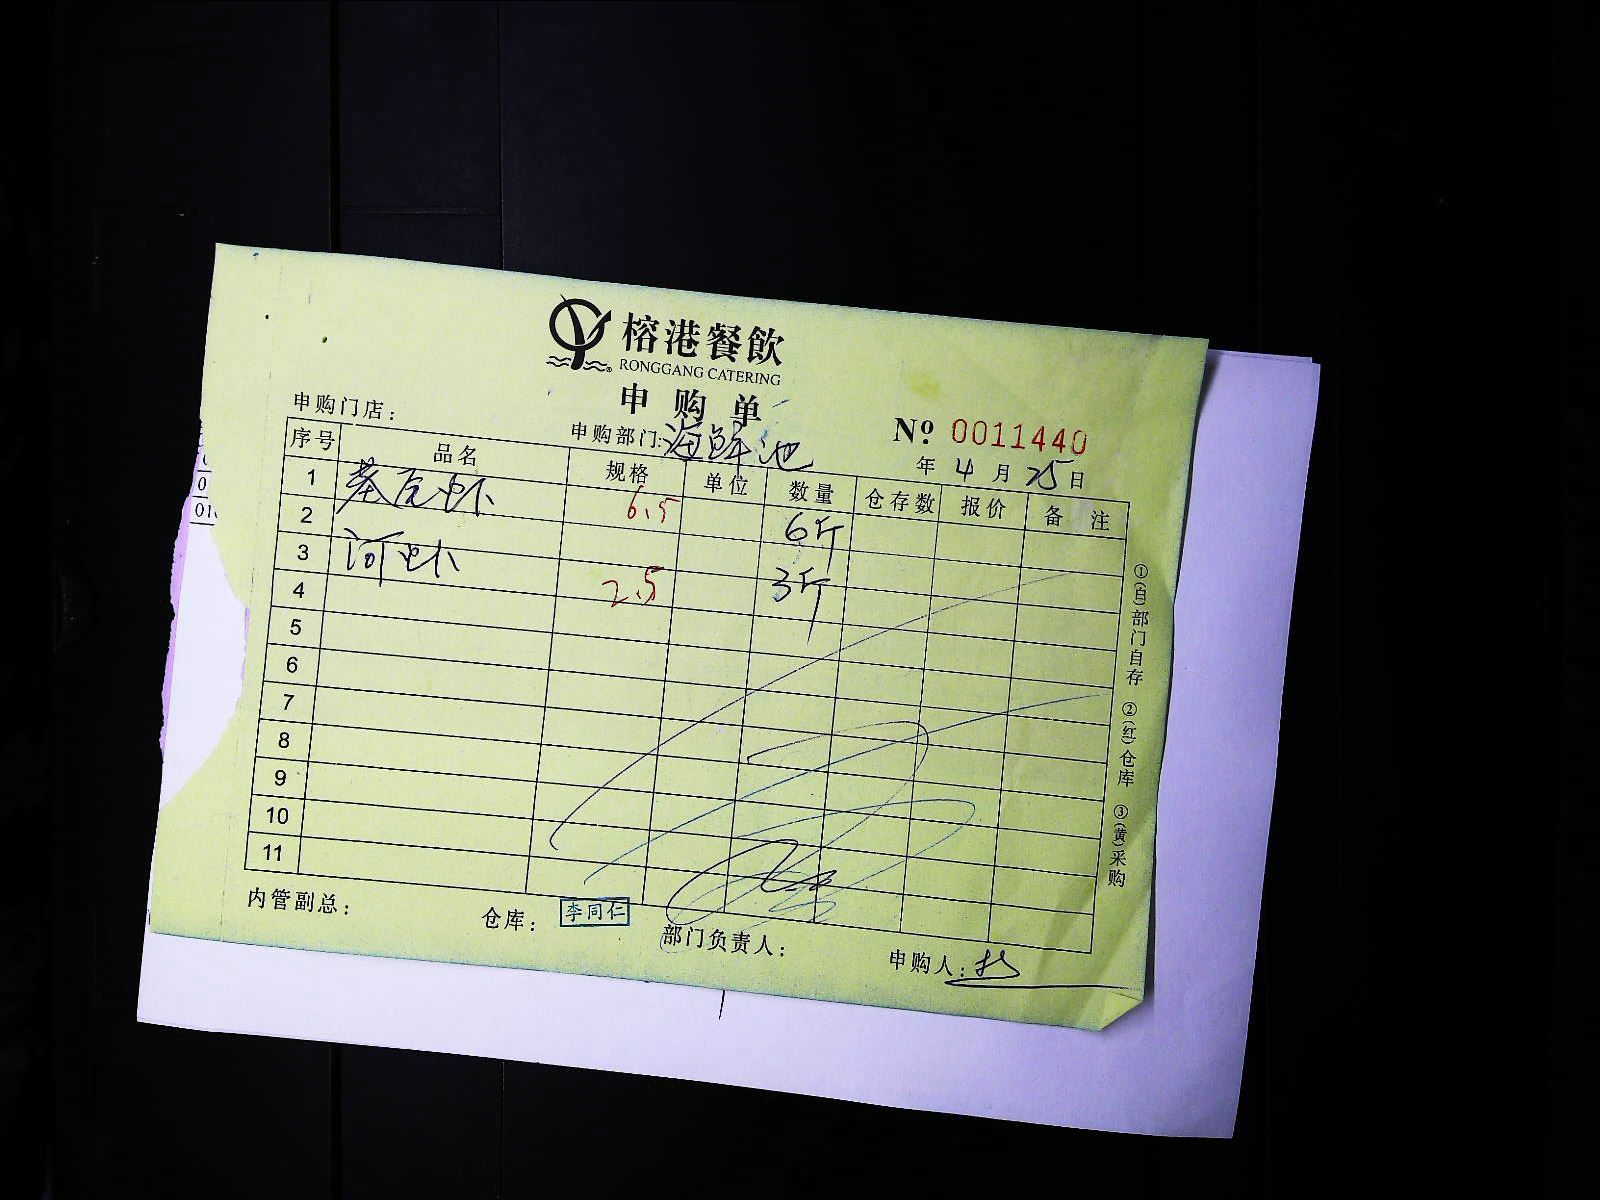 榕港餐飲
RONGGANG CATERING
申购单
申购门店：
申购部门:海鲜池
No 0011440
年 4 月 25 日
序号 品名 规格 单位 数量 仓存数 报价 备 注
1 基尾虾 6.5 6斤
2
3 河虾 2.5 3斤
4
5
6
7
8
9
10
11
①(白)部门自存 ②(红)仓库 ③(黄)采购
内管副总： 仓库： 李同仁 部门负责人： 申购人：
0
010